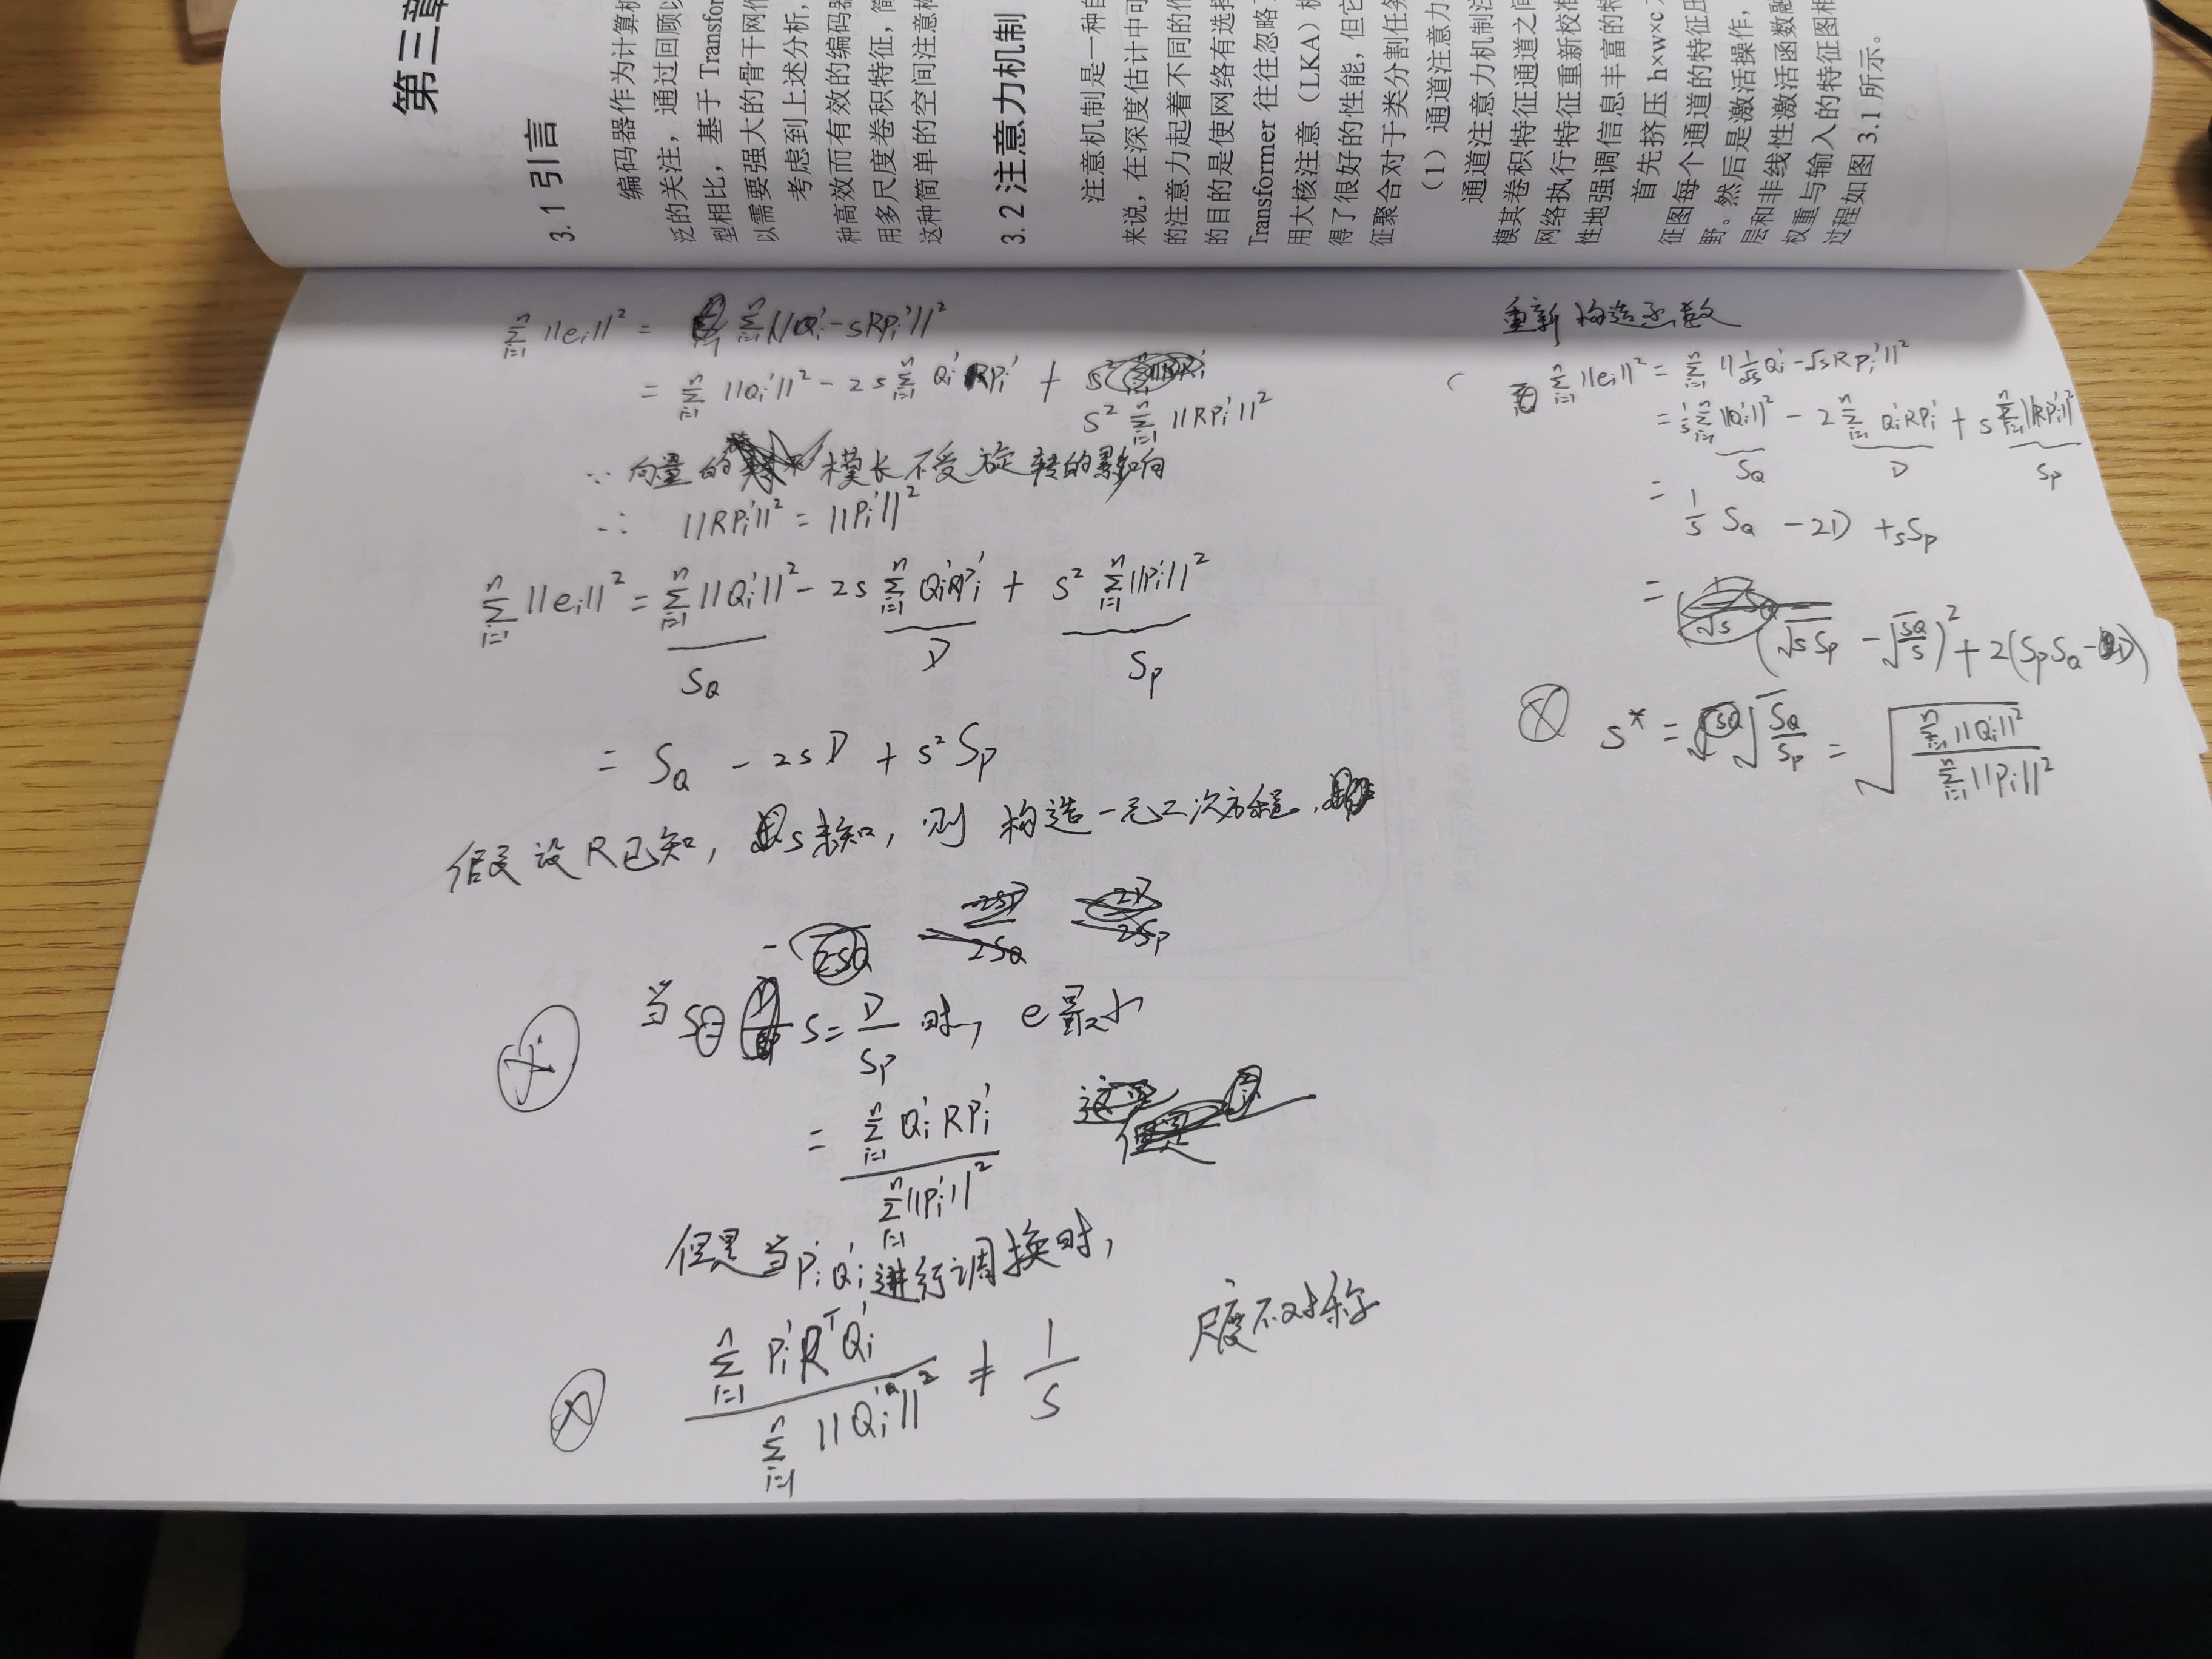 第三章
3.1 引言
编码器作为计算机
泛的关注，通过回顾以
型相比，基于 Transfor
以需要强大的骨干网作
考虑到上述分析，
种高效而有效的编码器
用多尺度卷积特征，简
这种简单的空间注意构
3.2 注意力机制
注意机制是一种自
来说，在深度估计中可
的注意力起着不同的作
的目的是使网络有选择
Transformer 往往忽略了
用大核注意（LKA）机
得了很好的性能，但它
征聚合对于类分割任务
（1）通道注意力
通道注意力机制注
模其卷积特征通道之间
网络执行特征重新校准
性地强调信息丰富的特
首先挤压 h×w×c
征图每个通道的特征压
野。然后是激活操作，
层和非线性激活函数融
权重与输入的特征图相
过程如图 3.1 所示。
∑_{i=1}^{n} ||e_i||² = ∑_{i=1}^{n} ||Q_i' - sRP_i'||²
= ∑_{i=1}^{n} ||Q_i'||² - 2s ∑_{i=1}^{n} Q_i' RP_i' + s² ∑_{i=1}^{n} ||RP_i'||²
∵ 向量的模长不受旋转的影响
∴ ||RP_i'||² = ||P_i'||²
∑_{i=1}^{n} ||e_i||² = ∑_{i=1}^{n} ||Q_i'||² - 2s ∑_{i=1}^{n} Q_i'RP_i' + s² ∑_{i=1}^{n} ||P_i'||²
S_Q D S_P
= S_Q - 2sD + s² S_P
假设R已知，s未知，则 构造一元二次方程，
当 s = D/S_P 时，e最小
= ∑_{i=1}^{n} Q_i' RP_i' / ∑_{i=1}^{n} ||P_i'||²
但是当P_i' Q_i'进行调换时，
∑_{i=1}^{n} P_i' R^T Q_i' / ∑_{i=1}^{n} ||Q_i'||² ≠ 1/s 尺度不对称
重新构造函数
∑_{i=1}^{n} ||e_i||² = ∑_{i=1}^{n} ||1/√s Q_i' - √s RP_i'||²
= 1/s ∑_{i=1}^{n} ||Q_i'||² - 2 ∑_{i=1}^{n} Q_i'RP_i' + s ∑_{i=1}^{n} ||RP_i'||²
S_Q D S_P
= 1/s S_Q - 2D + sS_P
= (√s S_P - √(S_Q/s))² + 2(S_P S_Q - D)
s* = √(S_Q/S_P) = √(∑_{i=1}^{n} ||Q_i'||² / ∑_{i=1}^{n} ||P_i'||²)